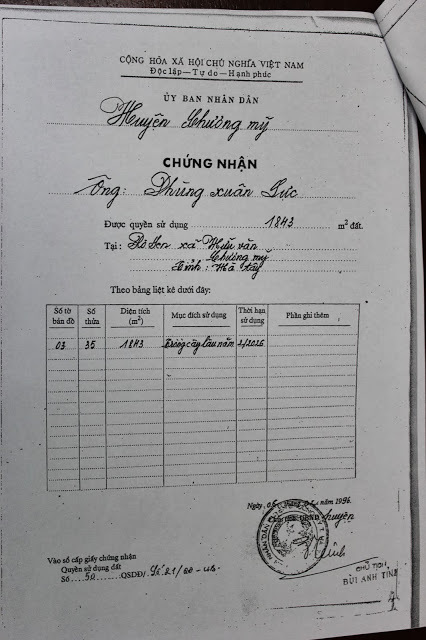 CỘNG HÒA XÃ HỘI CHỦ NGHĨA VIỆT NAM
Độc lập—Tự do—Hạnh phúc
ỦY BAN NHÂN DÂN
Huyện Chương mỹ
CHỨNG NHẬN
Ông: Phùng xuân
Được quyền sử dụng 1843 m² đất.
Tại: xã Hữu văn
Chương mỹ
tỉnh: Hà tây
Theo bảng liệt kê dưới đây:
Số tờ bản đồ
Số thửa
Diện tích (m²)
Mục đích sử dụng
Thời hạn sử dụng
Phần ghi thêm
03 35 1843 cây lâu năm 2/2026
Ngày 06 năm 1996
huyện
Vào sổ cấp giấy chứng nhận
Quyền sử dụng đất
Số 50 QSDĐ/
CHỦ TỊCH
BÙI ANH TỈNH